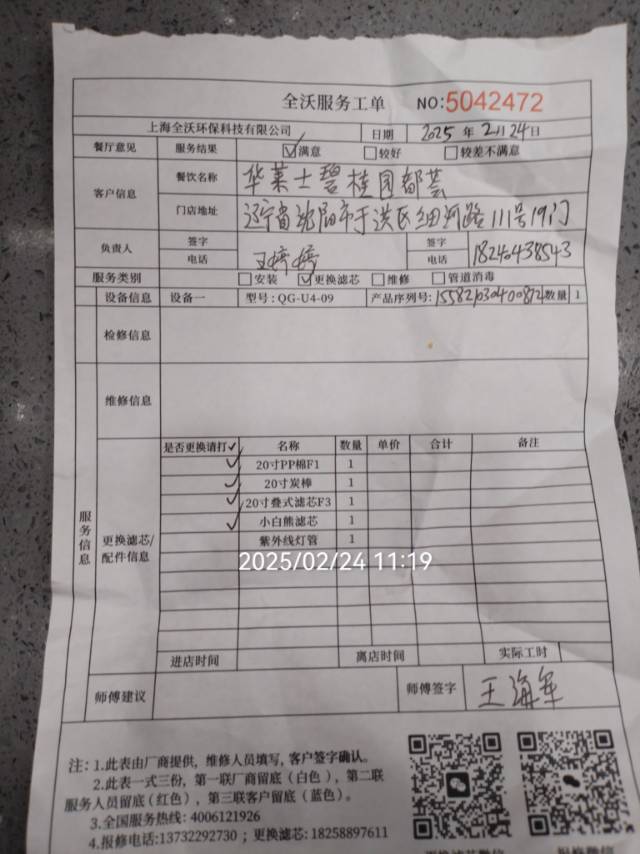 全沃服务工单 NO:5042472
上海全沃环保科技有限公司 日期 2025 年 2月24日
餐厅意见 服务结果 ☑满意 □较好 □较差不满意
客户信息 餐饮名称 华莱士碧桂园都荟
门店地址 辽宁省沈阳市于洪区细河路111号19门
负责人 签字 电话 王婷婷 签字 电话 18240438543
服务类别 □安装 ☑更换滤芯 □维修 □管道消毒
设备信息 设备一 型号: QG-U4-09 产品序列号: 数量 1
检修信息
维修信息
服务信息
更换滤芯/配件信息
是否更换请打✓ 名称 数量 单价 合计 备注
✓ 20寸PP棉F1 1
✓ 20寸炭棒 1
✓ 20寸叠式滤芯F3 1
✓ 小白熊滤芯 1
紫外线灯管 1
2025/02/24 11:19
进店时间 离店时间 实际工时
师傅建议 师傅签字 王海军
注: 1.此表由厂商提供, 维修人员填写, 客户签字确认。
2.此表一式三份, 第一联厂商留底 (白色), 第二联
服务人员留底(红色), 第三联客户留底 (蓝色)。
3.全国服务热线: 4006121926
4.报修电话:13732292730 ; 更换滤芯: 18258897611